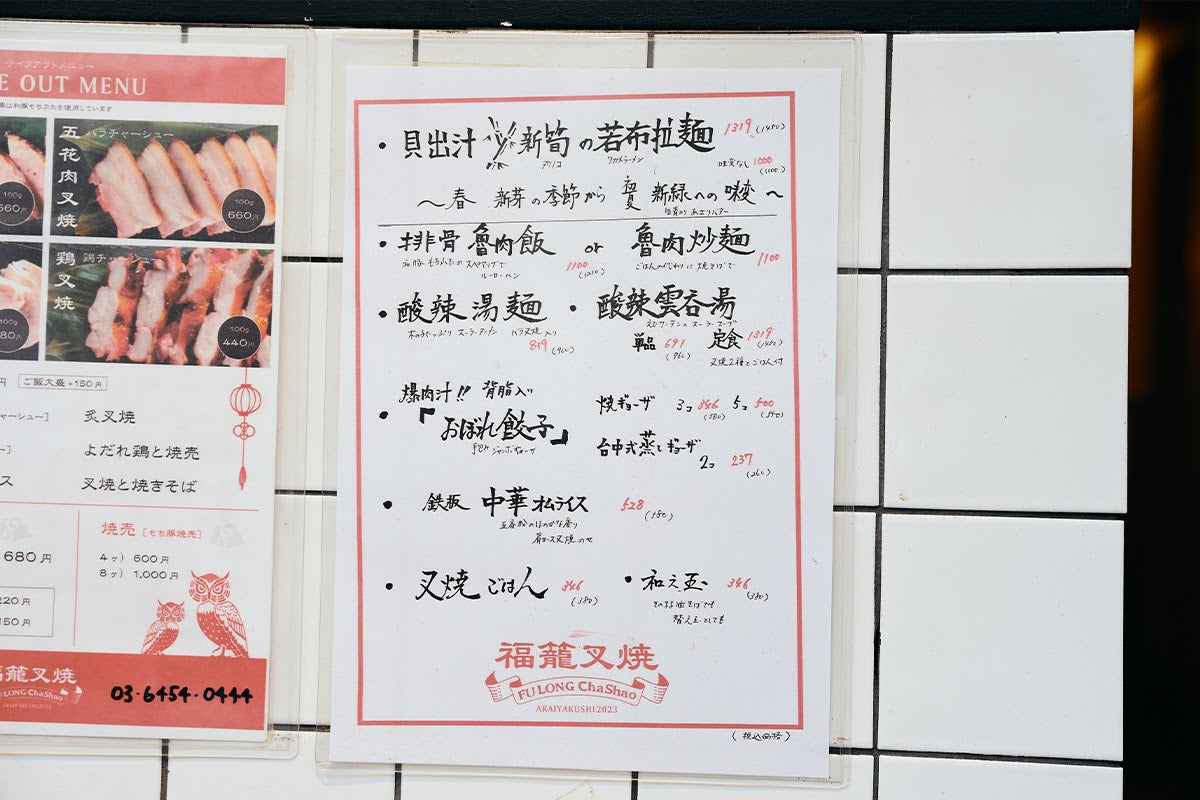 テイクアウトメニュー
E OUT MENU
豚は和豚もちぶたを使用しています
五花肉叉焼
バラチャーシュー
100g
660円
100g
660円
鶏叉焼
鶏チャーシュー
100g
80円
100g
440円
円
ご飯大盛+150円
ャーシュー]
炙叉焼
ー]
よだれ鶏と焼売
ス
叉焼と焼きそば
680円
220円
150円
焼売[もち豚焼売]
4ヶ) 600円
8ヶ) 1,000円
福龍叉焼
FU LONG ChaShao
ARAIYAKUSHI2023
03-6454-0444
・貝出汁 新筍の若布拉麺 1319 (1450)
タケノコ ワカメラーメン
味変なし 1000
(1100)
〜春 新芽の季節から 初夏 新緑への味変〜
・排骨 魯肉飯 or 魯肉炒麺
ルーローハン
1100
(1210)
ごはんのかわりに焼そばで
1100
・酸辣湯麺
バラ叉焼入り
819
(900)
・酸辣雲呑湯
単品 691
(760)
定食 1319
(1450)
叉焼2種とごはん付
爆肉汁!! 背脂入り
・「おぼれ餃子」
手包みジャンボギョーザ
焼ギョーザ 3コ 346 5コ 500
(380) (550)
台中式蒸しギョーザ
2コ 237
(260)
・鉄板 中華オムライス 528
(580)
五香粉のほのかな香り
肩ロース叉焼のせ
・叉焼ごはん 346
(380)
・和え玉 346
(380)
そのまま油そばでも
替え玉としても
福龍叉焼
FU LONG ChaShao
ARAIYAKUSHI2023
(税込価格)